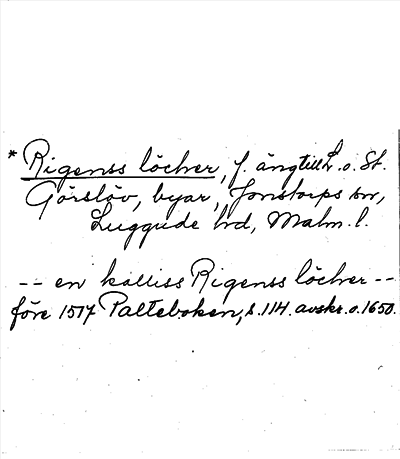 * Rigenss löcker, f. äng till L. o. St.
Görslöv, byar, Jonstorps sn,
Luggude hd, Malm. l.
-- en kalliss Rigenss löcher --
före 1517 Palteboken, s. 114. avskr. o. 1650.